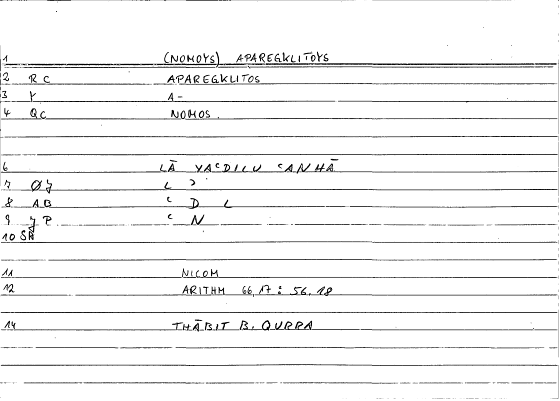 1 (NOMOYS) APAREGKLITOYS
2 RC APAREGKLITOS
3 Y A-
4 QC NOMOS.
6 LĀ YAᶜDILU ᶜANHĀ
7 ØJ L ᵓ
8 AB ᶜ D L
9 JP ᶜ N
10 SR
11 NICOM
12 ARITHM 66,17 : 56,18
14 THĀBIT B. QURRA